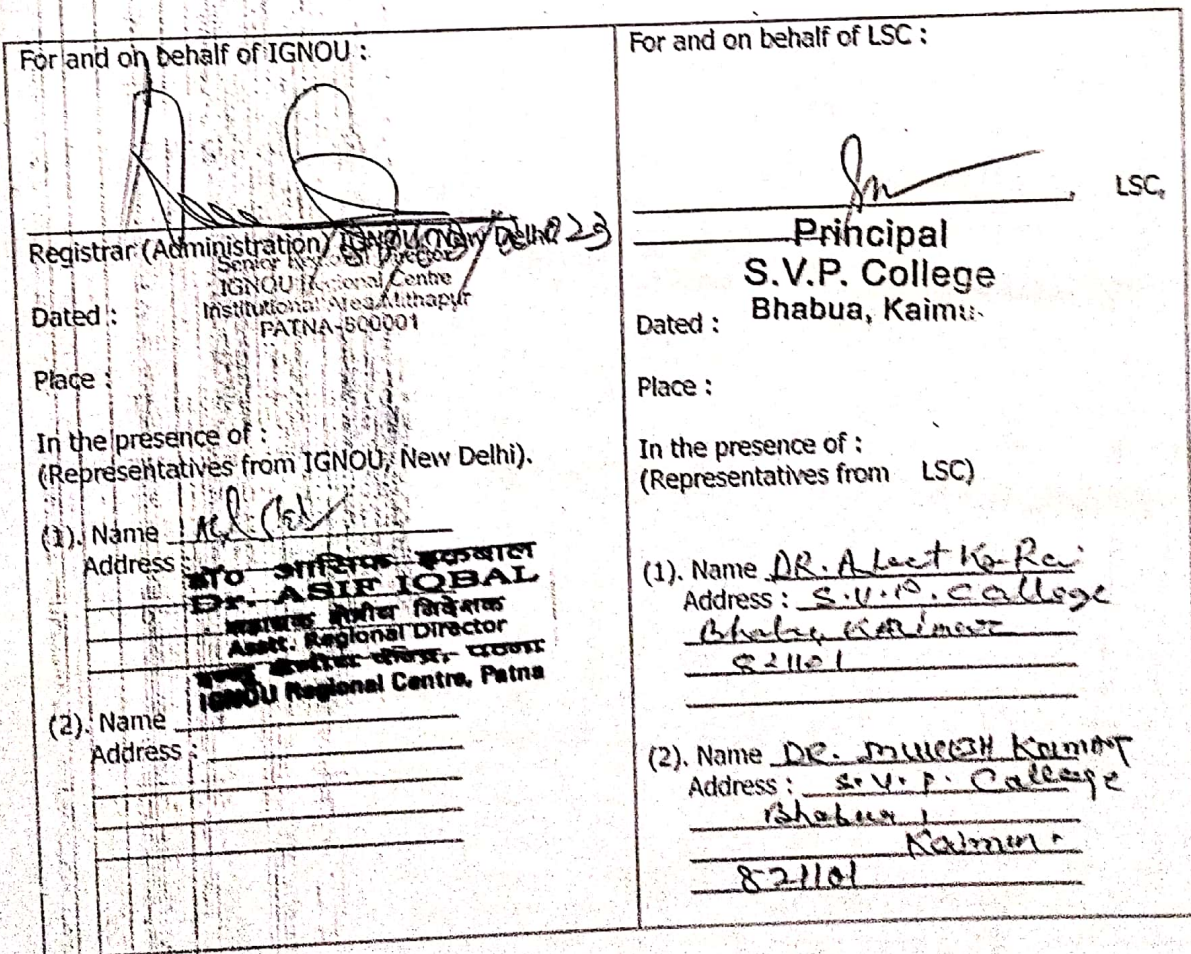 For and on behalf of IGNOU :
Registrar (Administration) IGNOU, New Delhi
Senior Regional Director
IGNOU Regional Centre
Institutional Area Mithapur
PATNA-800001
Dated :
Place :
In the presence of :
(Representatives from IGNOU, New Delhi).
(1). Name
Address :
डॉ० आसिफ इकबाल
Dr. ASIF IQBAL
सहायक क्षेत्रीय निदेशक
Asstt. Regional Director
इग्नू क्षेत्रीय केन्द्र, पटना
IGNOU Regional Centre, Patna
(2). Name
Address :
For and on behalf of LSC :
LSC,
Principal
S.V.P. College
Bhabua, Kaimu
Dated :
Place :
In the presence of :
(Representatives from LSC)
(1). Name DR. Rai
Address : S.V.P. College
821101
(2). Name DR.
Address : S.V.P. College
Bhabua,
821101